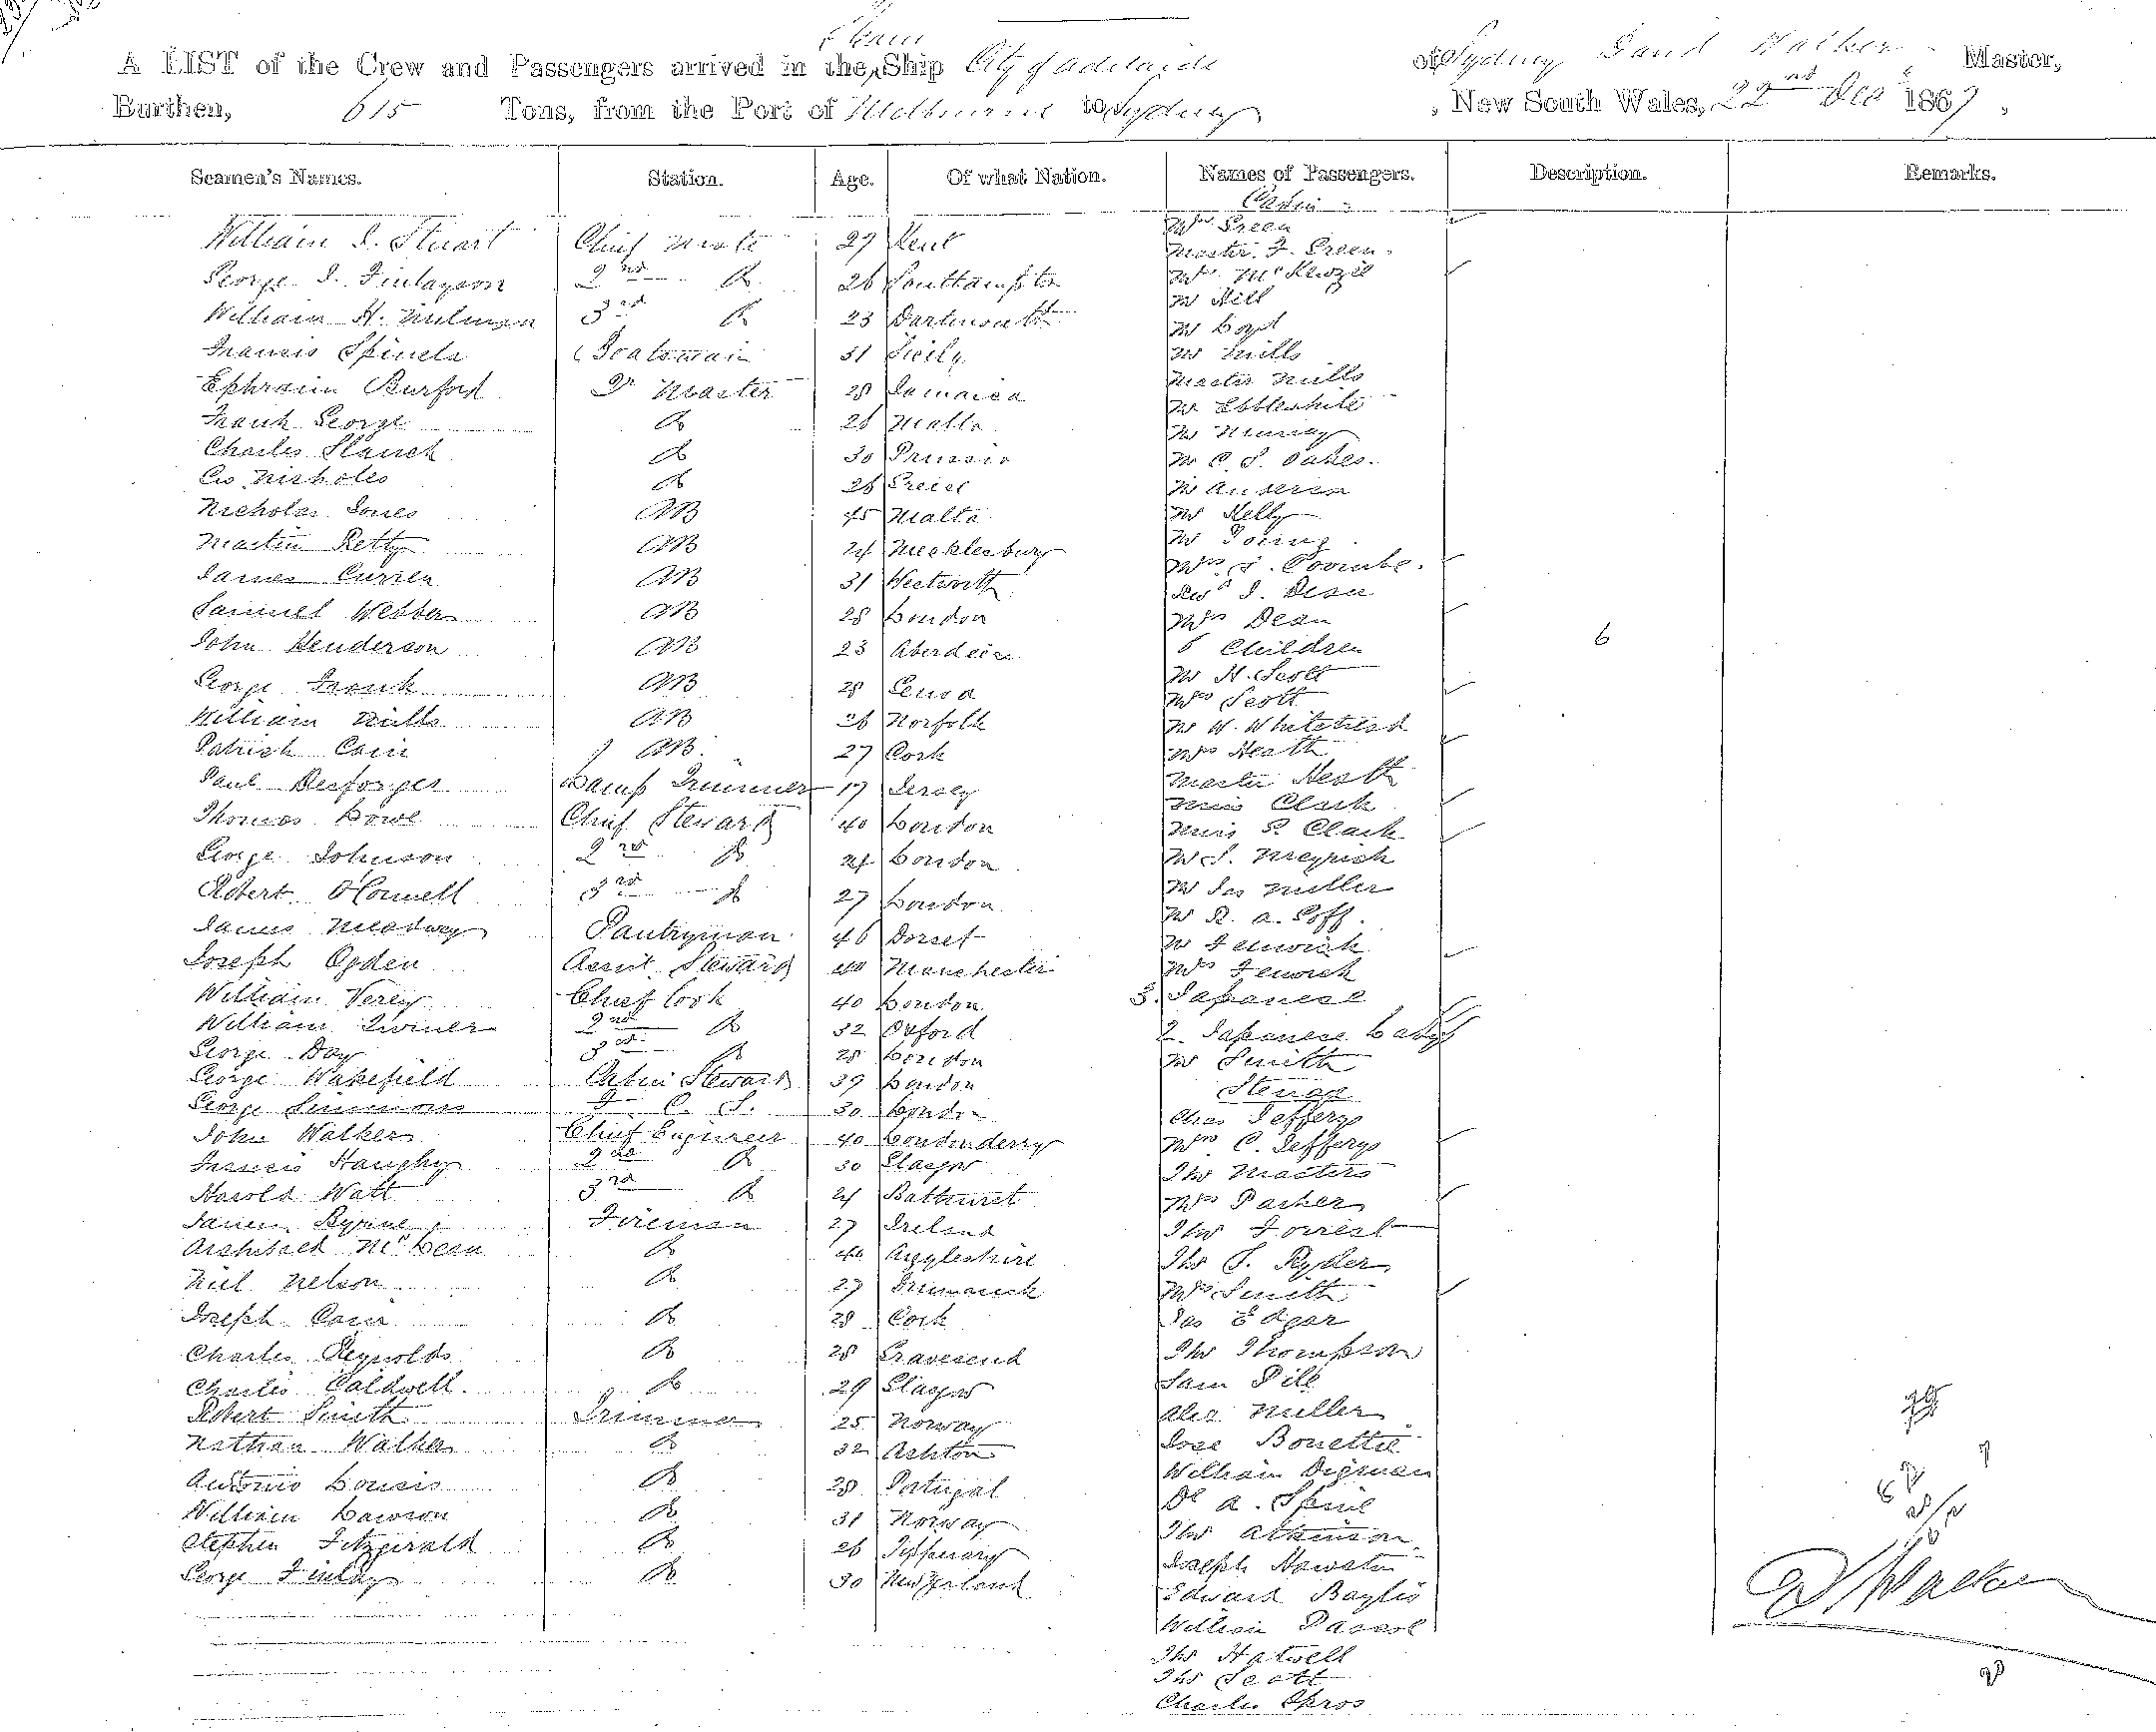 Steam
A LIST of the Crew and Passengers arrived in the Ship City of Adelaide of Sydney David Walker Master,
Burthen, 615 Tons, from the Port of Melbourne to Sydney, New South Wales, 22nd Dec 1867,
Seamen's Names. Station. Age. Of what Nation. Names of Passengers. Description. Remarks.
Cabin
William J. Stuart Chief Mate 27 Kent Mrs Green
Master F. Green
George I. Finlayson 2nd Do 26 Southampton Mrs McKenzie
Mr Hill
William H. Milman 3rd Do 23 Dartmouth Mr Boyd
Francis Spinela Boatswain 31 Sicily Mr Mills
Ephraim Burford Qr Master 28 Jamaica Master Mills
Mr Ebblewhite
Frank George Do 26 Malta Mr Murray
Charles Do 30 Prussia Mr C. S. Oakes
Nicholes Do 26 Greece Mr Anderson
Nicholas Jones AB 45 Malta Mr Kelly
Martin Retty AB 24 Mecklesburg Mr Young
James Curren AB 31 Mrs J. Coombe
Revd J. Dean
Samuel Webber AB 28 London Mrs Dean
John Henderson AB 23 Aberdeen 6 Children 6
Mr H. Scott
George Frank AB 28 Genoa Mrs Scott
William Mills AB 26 Norfolk Mr W. Whitehead
Patrick Cain AB 27 Cork Mrs Heath
Paul Desforges Lamp Trimmer 17 Jersey Master Heath
Miss Clark
Thomas Lowe Chief Steward 40 London Miss S. Clark
George Johnson 2nd Do 24 London Mr S. Meyrick
Robert O'Connell 3rd Do 27 London Mr Jas Miller
Mr R. A. Goff
James Medway Pantryman 46 Dorset Mr Fenwick
Joseph Ogden Assist Steward 40 Manchester Mrs Fenwick
William Verey Chief Cook 40 London 3 Japanese
William 2nd Do 32 Oxford 2 Japanese Lady
George Day 3rd Do 28 London Mr Smith
George Wakefield Cabin Steward 39 London Steerage
George Simmons F. C. S. 30 London Chas Jefferys
John Walker Chief Engineer 40 Londonderry Mrs C. Jefferys
Francis Haughy 2nd Do 30 Glasgow Thos Masters
Harold Watt 3rd Do 24 Bathurst Mrs Parker
James Byrne Fireman 27 Ireland Thos Forrest
Archibald McLean Do 40 Argyleshire Thos S. Ryder
Niel Nelson Do 27 Mrs Smith
Joseph Cain Do 28 Cork Jas Edgar
Charles Reynolds Do 28 Gravesend Thos Thompson
Charles Caldwell Do 29 Glasgow Sam Pill
Robert Smith Trimmer 25 Norway Alex Miller
Nathan Walker Do 32 Ashton Jose Bonettie
Antonio Do 28 Portugal William Digman
William Lawson Do 31 Norway Dl A. Spiul
Stephen Fitzgerald Do 26 Tipperary Thos Atkinson
George Finlay Do 30 New Zeland Joseph Howston
Edward Baylis
William
Thos Hatwell
Thos Scott
Charles Spros
D Walker